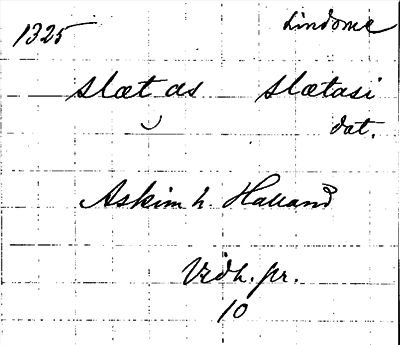 1325 Lindome
slæt as slætasi
dat.
Askim h. Halland
Vidh. pr.
10